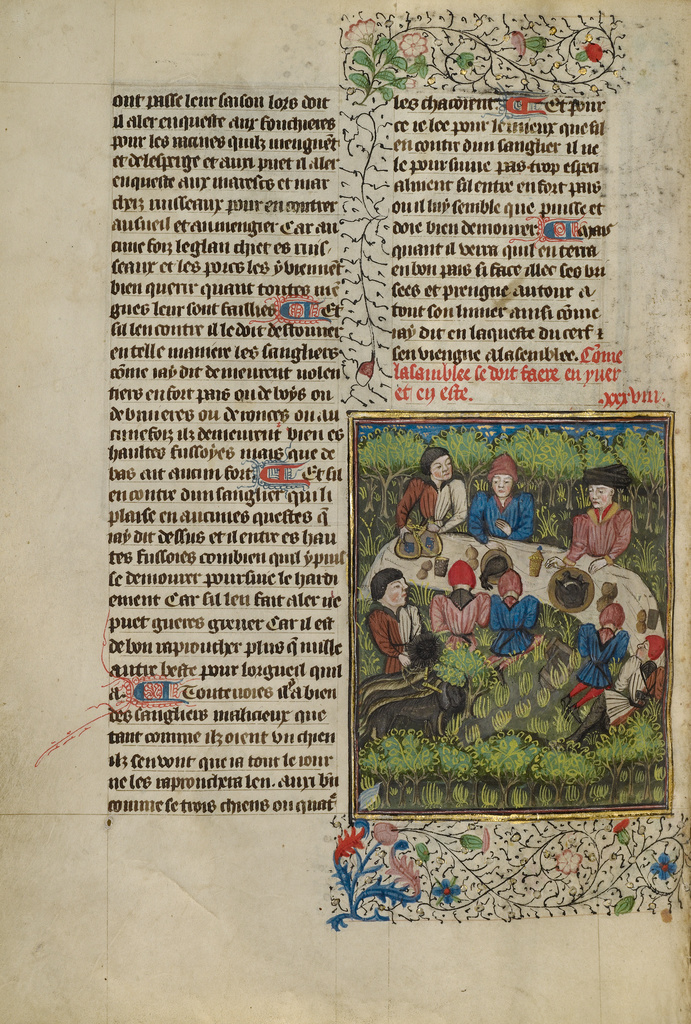 ont passe leur saison lors doit
il aler enqueste aux fouchieres
pour les racines quilz menguẽt
et delesperge et auxi puet il aler
enqueste aux marescs et mar
chiz ruisseaux pour en contrer
ausueil et aumengier Car au
cune foiz le glan chiet es ruis
seaux et les porcs les y viennẽt
bien querir quant toutes mẽ
gues leur sont faillies Et
sil len contre il le doit destourner
en telle maniere les sangliers
cõme iay dit demeurent volen
tiers en fort pais ou de boys ou
de bruieres ou de ronces ou au
cune foiz ilz demeurent bien es
haultes fustoyes mais que de
bas ait aucun fort Et sil
en contre dun sanglier qui li
plaise en aucunes questes q̃
iay dit dessus et il entre es hau
tes fustoies combien quil y puis
se demourer poursuiue le hardi
ement Car sil leu fait aler ne
puet gueres greuer Car il est
de bon raprouchier plus q̃ nulle
autre beste pour lorgueil quil
a. Toutevoies il y a bien
des sangliers malicieux que
tant comme ilz oient vn chien
ilz sen vont que ia tout le iour
ne les raprouchera len. Auxi biẽ
comme se trois chiens ou quat'
les chacoient Et pour
ce ie lee pour le mieux que sil
en contre dun sanglier il ne
le poursuiue pas trop especi
alment sil entre en fort pais
ou il luy semble que puisse et
doie bien demourer. Mais
quant il verra quil en terra
en bon pais si face illec ses bri
sees et prengne autour a
tout son limier ainsi cõme
iay dit en laqueste du cerf ⁊
sen viengne alasemblee. Cõme
lasamblee se doit faere en yuer
et en este. .xxxviii.